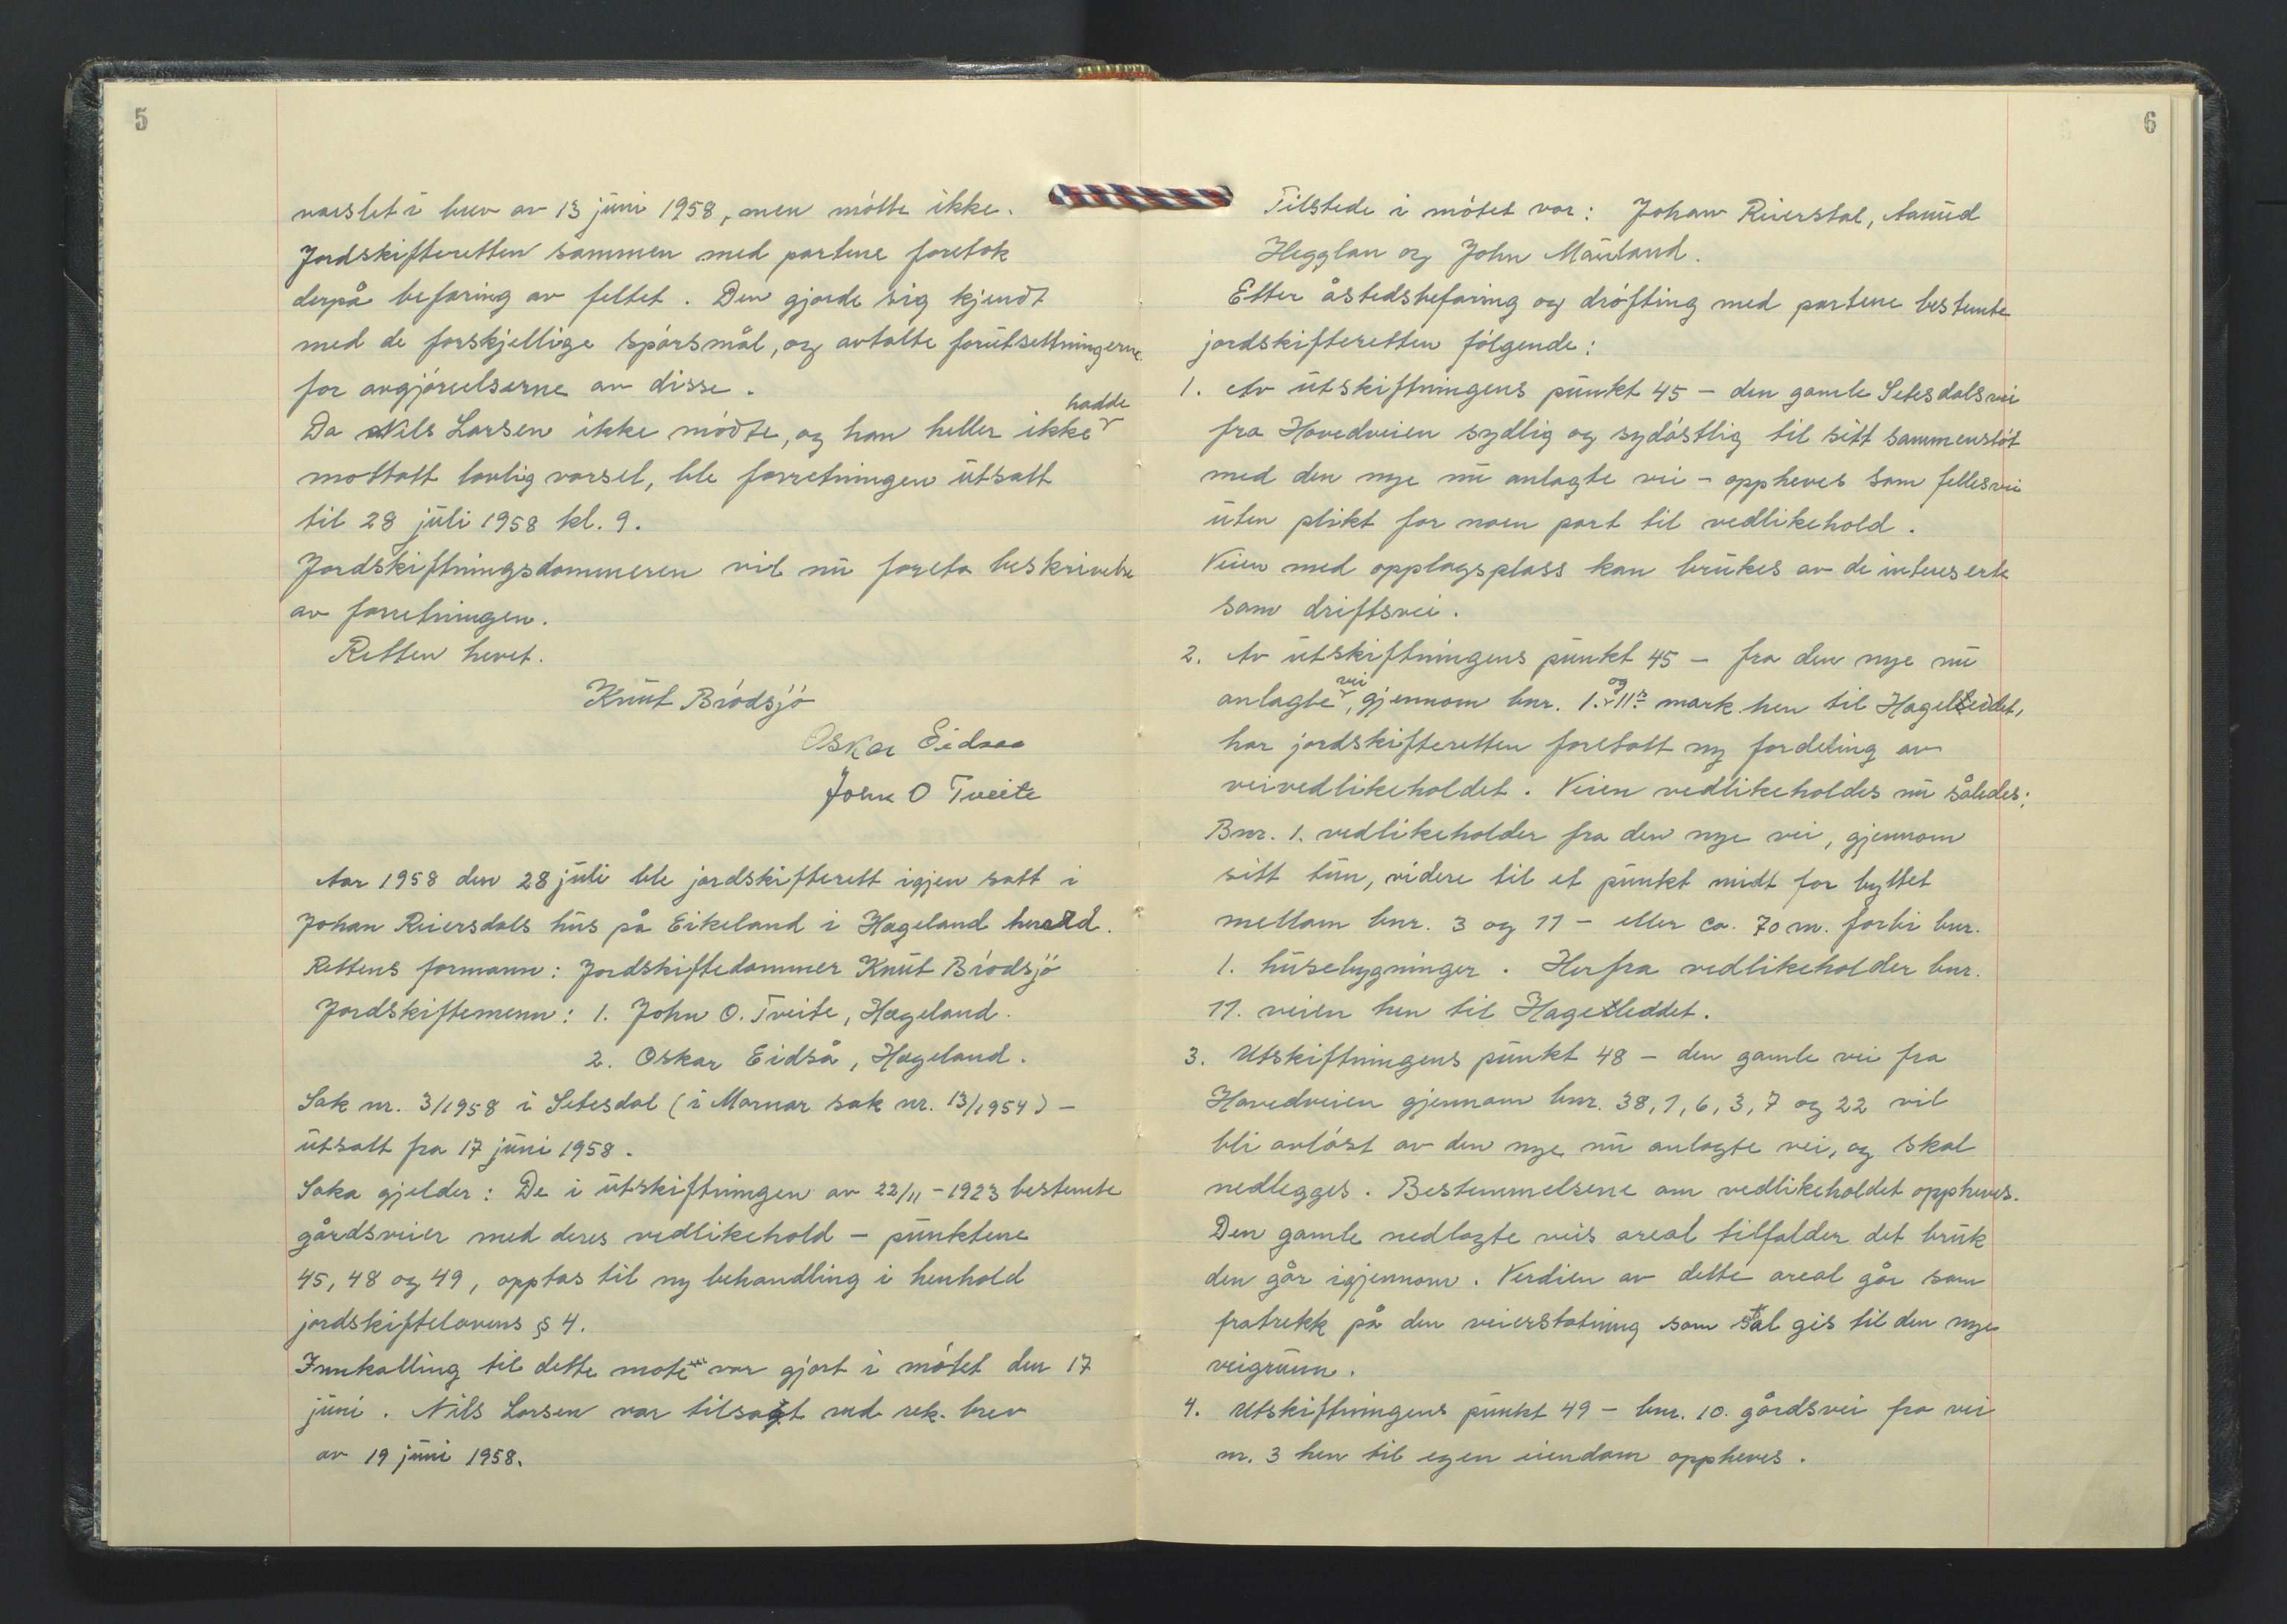 5
varslet i brev av 13 juni 1958, men møtte ikke.
Jordskifteretten sammen med partene foretok
derpå befaring av feltet. Den gjorde sig kjendt
med de forskjellige spørsmål, og avtalte forutsettningerne
for avgjørelserne av disse.
Da Nils Larsen ikke mødte, og han heller ikke hadde
mottatt lovlig varsel, ble forretningen utsatt
til 28 juli 1958 kl. 9.
Jordskiftningsdommeren vil nu foreta beskrivelse
av forretningen.
Retten hevet.
Knut Brødsjø
Oskar Eidsaa
John O Tveite
Aar 1958 den 28 juli ble jordskifterett igjen satt i
Johan Reiersdals hus på Eikeland i Hægeland herad.
Rettens formann: Jordskiftedommer Knut Brødsjø
Jordskiftemenn: 1. John O. Tveite, Hægeland.
2. Oskar Eidså, Hægeland.
Sak nr. 3/1958 i Setesdal (i Marnar sak nr. 13/1954) –
utsatt fra 17 juni 1958.
Saka gjelder: De i utskiftningen av 22/11 – 1923 bestemte
gårdsveier med deres vedlikehold – punktene
45, 48 og 49, opptas til ny behandling i henhold
jordskiftelovens § 4.
Innkalling til dette møte var gjort i møtet den 17
juni. Nils Larsen var tilsagt ved rek. brev
av 19 juni 1958.
6
Tilstede i møtet var: Johan Reierstal, Aamud
Hegglan og John Mauland.
Etter åstedsbefaring og drøfting med partene bestemte
jordskifteretten følgende:
1. Av utskiftningens punkt 45 – den gamle Setesdalsvei
fra Hovedveien sydlig og sydøstlig til sitt sammenstøt
med den nye nu anlagte vei – oppheves som fellesvei
uten plikt for noen part til vedlikehold.
Veien med opplagsplass kan brukes av de intereserte
som driftsvei.
2. Av utskiftningens punkt 45 – fra den nye nu
anlagte vei, gjennom bnr. 1. og 11s mark hen til Hageleddet,
har jordskifteretten foretatt ny fordeling av
veivedlikeholdet. Veien vedlikeholdes nu således:
Bnr. 1. vedlikeholder fra den nye vei, gjennom
sitt tun, videre til et punkt midt for byttet
mellam bnr. 3 og 11 – eller ca. 70 m. forbi bnr.
1. husebygninger. Herfra vedlikeholder bnr.
11. veien hen til Hageleddet.
3. Utskiftningens punkt 48 – den gamle vei fra
Hovedveien gjennom bnr. 38, 1, 6, 3, 7 og 22 vil
bli avløst av den nye nu anlagte vei, og skal
nedlegges. Bestemmelsene om vedlikeholdet oppheves.
Den gamle nedlagte veis areal tilfalder det bruk
den går igjennom. Verdien av dette areal går som
fratrekk på den veierstatning som skal gis til den nye
veigrunn.
4. Utskiftningens punkt 49 – bnr. 10. gårdsvei fra vei
nr. 3 hen til egen eiendom oppheves.